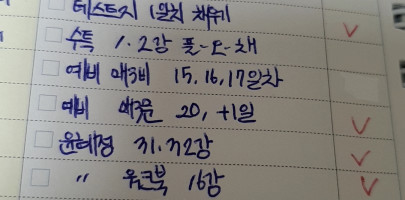 테스트지 1일치 채우기
수특 1.2강 풀-오-채
예비 매3비 15,16,17일차
예비 매3문 20, +1일
윤혜정 31.32강
〃 워크북 16강